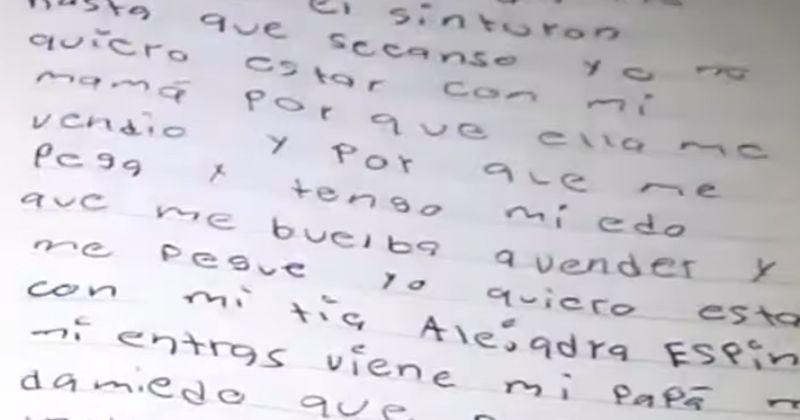 hasta que el sinturon
que secanso yo no
quiero estar con mi
mamá por que ella me
vendio y por que me
pega y tengo miedo
que me buelba avender y
me pegue yo quiero esta
con mi tia Alejadra Espin
mientras viene mi papá
damiedo que